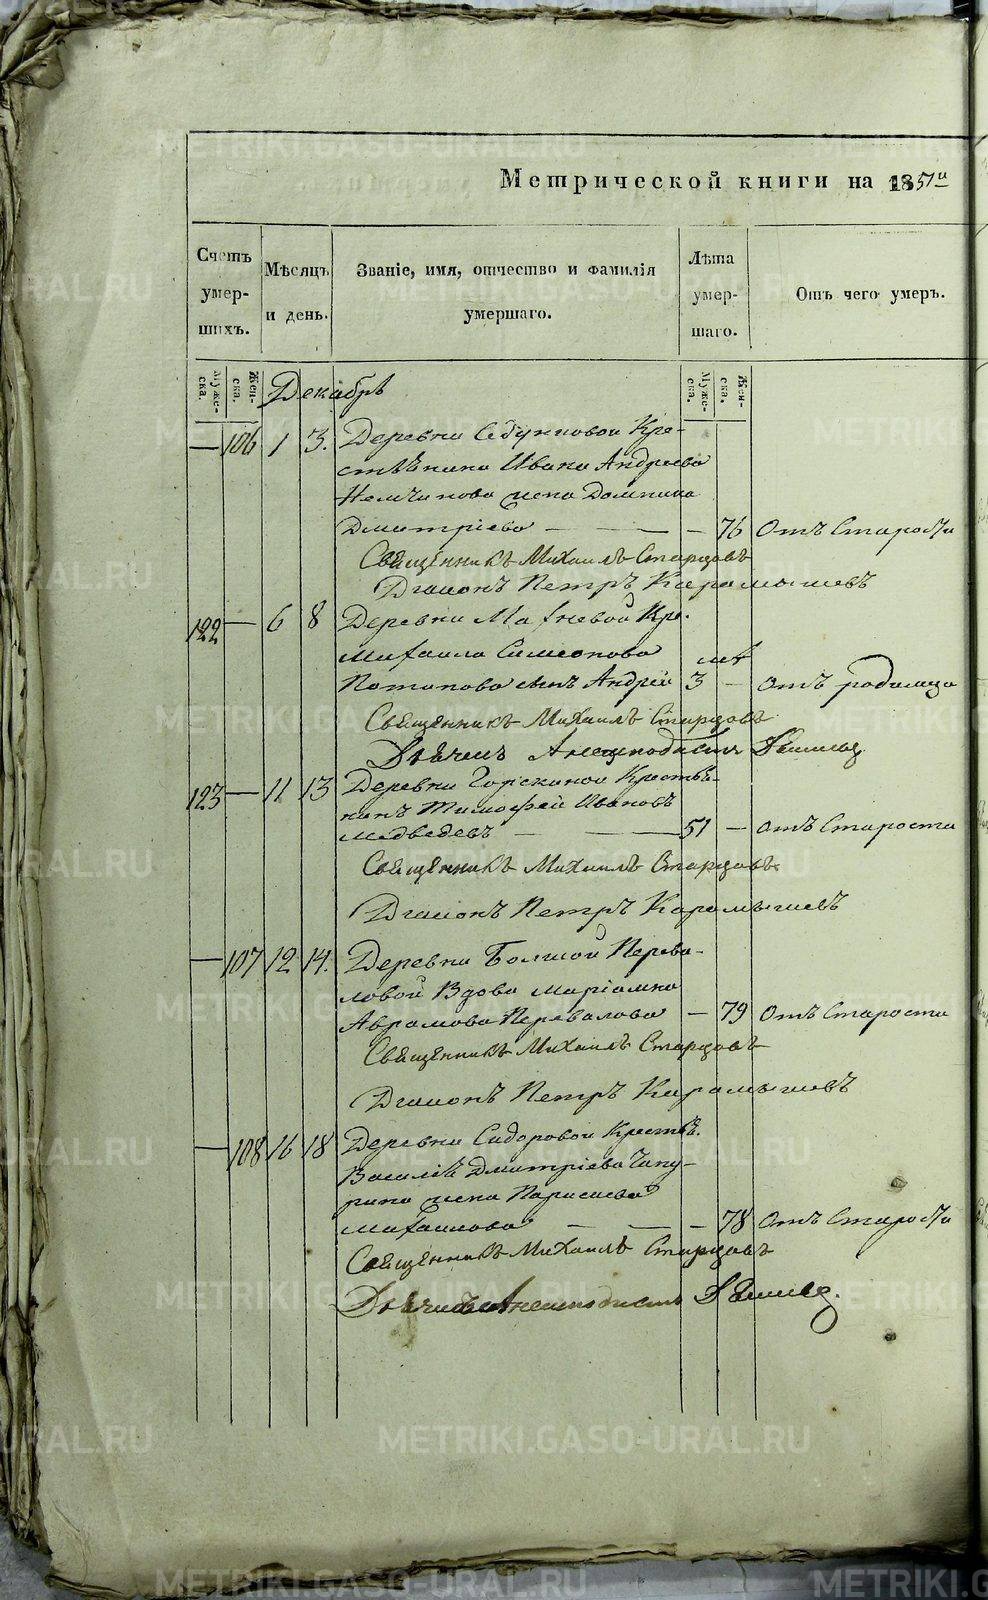 Метрической книги на 1851й
Счетъ умер-шихъ.
Мѣсяцъ и день.
Званіе, имя, отчество и фамилія умершаго.
Лѣта умер-шаго.
Отъ чего умеръ.
Муже-ска.
Жен-ска.
Декабрь
Муже-ска.
Жен-ска.
— 106 1 3. Деревни Седунковой Кре-
стьянина Ивана Андреева
Немчинова жена Домника
Дмитріева — — — 76 Отъ Старости
Священникъ Михаилъ Старцовъ
Діаконъ Петръ Карамышевъ
122 — 6 8 Деревни Махневой Кре.
Михаила Симеонова
Потапова сынъ Андрей 3 лѣт — отъ родимца
Священникъ Михаилъ Старцовъ
Дьячекъ
123 — 11 13 Деревни Горскиной Крестья-
нинъ Тимофей Ивановъ
Медведевъ — — 51 — отъ Старости
Священникъ Михаилъ Старцовъ
Діаконъ Петръ Карамышевъ
— 107 12 14. Деревни Болшой Перева-
ловой Вдова Маріамна
Аврамова Перевалова — 79 отъ Старости
Священникъ Михаилъ Старцовъ
Діаконъ Петръ Карамышевъ
— 108 16 18 Деревни Сидоровой Крестья.
Василія Дмитріева Чапу-
рина жена Парасковья
Михайлова — — — 78 отъ Старости
Священникъ Михаилъ Старцовъ
Дьячекъ
METRIKI.GASO-URAL.RU